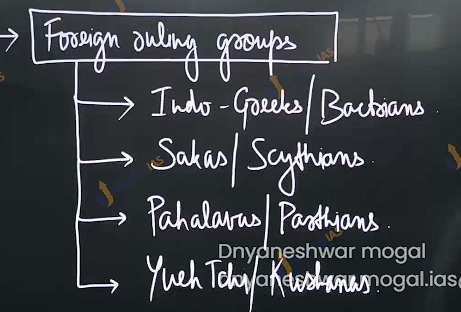 Foreign ruling groups
Indo-Greeks/Bactrians.
Sakas/Scythians.
Pahalavas/Parthians.
Dnyaneshwar mogal
Yueh Tchi/Kushanas.
dnyaneshwar.mogal.ias
IAS
IAS